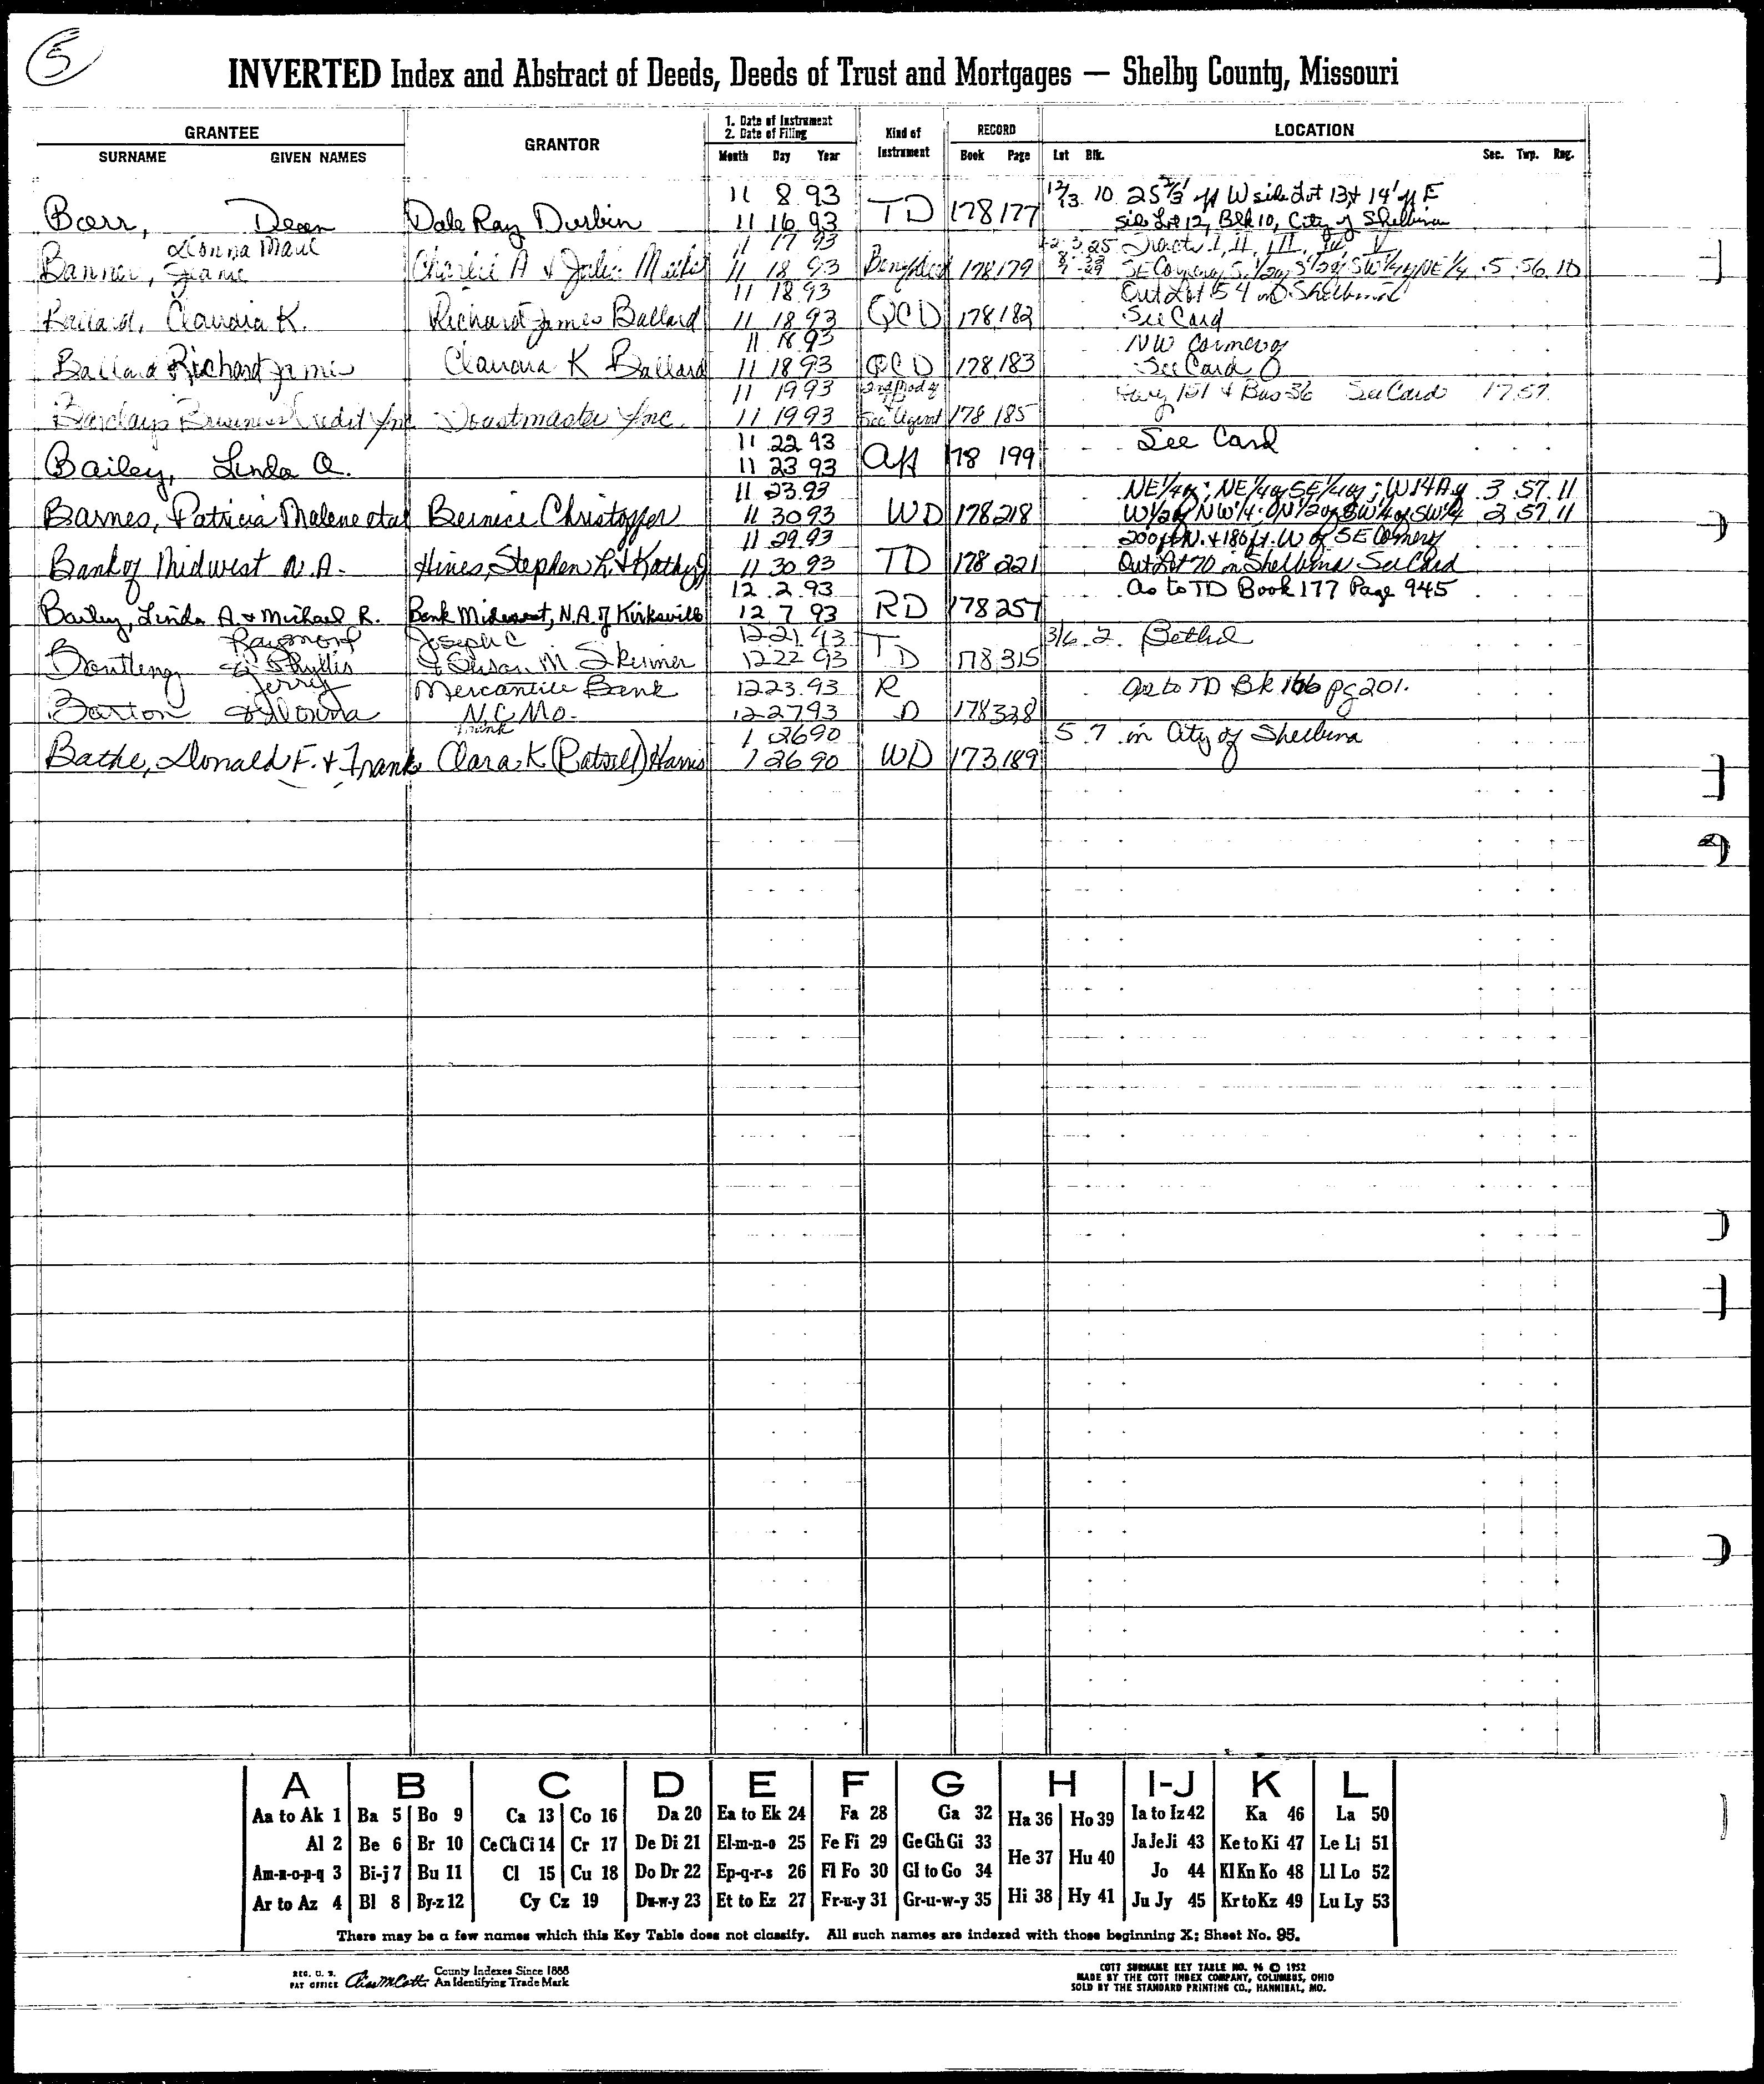 5
INVERTED Index and Abstract of Deeds, Deeds of Trust and Mortgages — Shelby County, Missouri
GRANTEE
SURNAME GIVEN NAMES
GRANTOR
1. Date of Instrument
2. Date of Filing
Month Day Year
Kind of
Instrument
RECORD
Book Page
LOCATION
Lot Blk. Sec. Twp. Rng.
11 8 93 12/13 10 25 2/3' off W side Lot 13 & 14' off E
Barr, Dean Dale Ray Durbin 11 16 93 TD 178 177 side Lot 12, Blk 10, City of Shelbina
Donna Marie 11 17 93 Tract I, II, III, IV V
Banner, Charlie A & Julie 11 18 93 178 179 SE Corner of S 1/2 of S 1/2 of SW 1/4 of NE 1/4 5 56 10
11 18 93 Out Lot 54 in Shelbina
Ballard, Claudia K. Richard James Ballard 11 18 93 QCD 178 182 See Card
11 18 93 NW Corner of
Ballard Richard James Claudia K Ballard 11 18 93 QCD 178 183 See Card
11 19 93 2nd Mod of Hwy 151 & Bus 36 See Card 17 57
Barclays Business Credit Inc Toastmaster Inc. 11 19 93 Sec Agmt 178 185
11 22 93 See Card
Bailey, Linda A. 11 23 93 Aff 178 199
11 23 93 NE 1/4 of; NE 1/4 of SE 1/4 of; W 14 A of 3 57 11
Barnes, Patricia Malene etal Bernice Christopher 11 30 93 WD 178 218 W 1/2 of NW 1/4; N 1/2 of SW 1/4 of SW 1/4 2 57 11
11 29 93 200 ft N. & 180 ft. W of SE Corner of
Bank of Midwest N.A. Hines, Stephen L & Kathy J 11 30 93 TD 178 221 Out Lot 70 in Shelbina See Card
12 2 93 As to TD Book 177 Page 945
Bailey, Linda A. & Michael R. Bank Midwest, N.A. of Kirksville 12 7 93 RD 178 257
Raymond Joseph C 12 21 93 T 3/6 2 Bethel
& Phyllis & Susan M. Skinner 12 22 93 D 178 315
Jerry Mercantile Bank 12 23 93 R As to TD Bk 166 pg 201.
Barton & Donna N.C. Mo. 12 27 93 D 178 328
Frank 1 26 90 5 7 in City of Shelbina
Bathe, Donald F. & Frank Clara K (Patsell) Harris 1 26 90 WD 173 189
A B C D E F G H I-J K L
Aa to Ak 1 Ba 5 Bo 9 Ca 13 Co 16 Da 20 Ea to Ek 24 Fa 28 Ga 32 Ha 36 Ho 39 Ia to Iz 42 Ka 46 La 50
Al 2 Be 6 Br 10 Ce Ch Ci 14 Cr 17 De Di 21 El-m-n-o 25 Fe Fi 29 Ge Gh Gi 33 He 37 Hu 40 Ja Je Ji 43 Ke to Ki 47 Le Li 51
Am-n-o-p-q 3 Bi-j 7 Bu 11 Cl 15 Cu 18 Do Dr 22 Ep-q-r-s 26 Fl Fo 30 Gl to Go 34 Jo 44 Kl Kn Ko 48 Ll Lo 52
Ar to Az 4 Bl 8 By-z 12 Cy Cz 19 Du-w-y 23 Et to Ez 27 Fr-u-y 31 Gr-u-w-y 35 Hi 38 Hy 41 Ju Jy 45 Kr to Kz 49 Lu Ly 53
There may be a few names which this Key Table does not classify. All such names are indexed with those beginning X; Sheet No. 95.
REG. U. S. PAT OFFICE County Indexes Since 1888 An Identifying Trade Mark
COTT SURNAME KEY TABLE NO. 96 © 1952
MADE BY THE COTT INDEX COMPANY, COLUMBUS, OHIO
SOLD BY THE STANDARD PRINTING CO., HANNIBAL, MO.